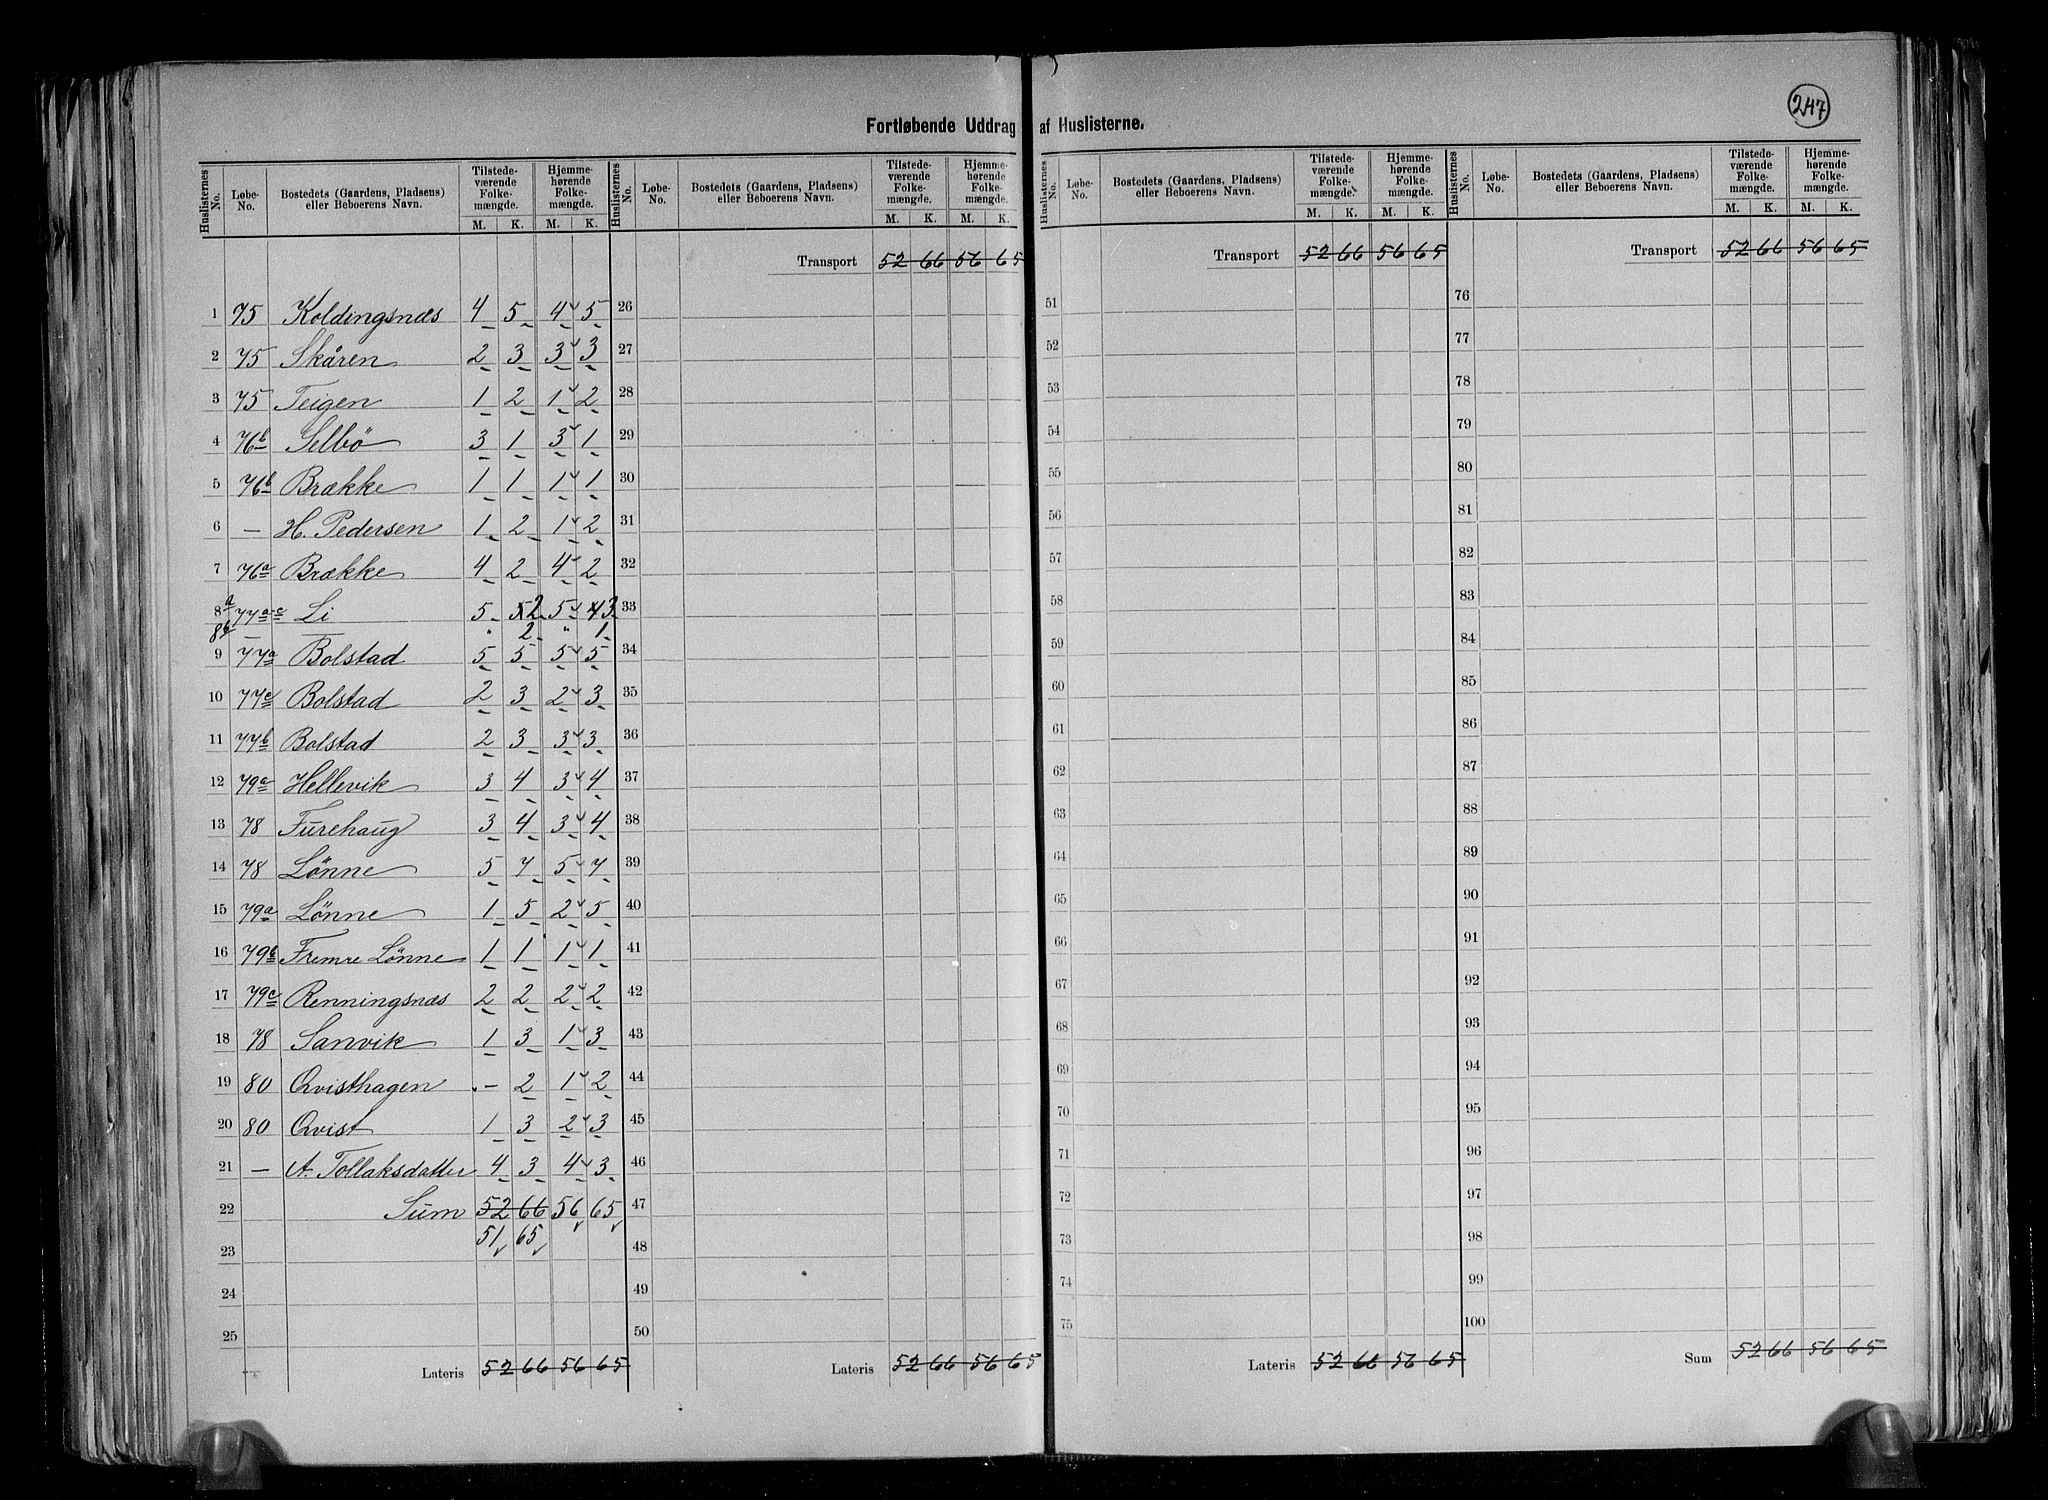 247
Fortløbende Uddrag af Huslisterne.
Huslisternes No. | Løbe-No. | Bostedets (Gaardens, Pladsens) eller Beboerens Navn. | Tilstedeværende Folkemængde. M. K. | Hjemmehørende Folkemængde. M. K.
Huslisternes No. | Løbe-No. | Bostedets (Gaardens, Pladsens) eller Beboerens Navn. | Tilstedeværende Folkemængde. M. K. | Hjemmehørende Folkemængde. M. K.
Huslisternes No. | Løbe-No. | Bostedets (Gaardens, Pladsens) eller Beboerens Navn. | Tilstedeværende Folkemængde. M. K. | Hjemmehørende Folkemængde. M. K.
Huslisternes No. | Løbe-No. | Bostedets (Gaardens, Pladsens) eller Beboerens Navn. | Tilstedeværende Folkemængde. M. K. | Hjemmehørende Folkemængde. M. K.
1 75 Koldingsnæs 4 5 4 5
2 75 Skåren 2 3 3 3
3 75 Teigen 1 2 1 2
4 76b Selbö 3 1 3 1
5 76b Brække 1 1 1 1
6 — H. Pedersen 1 2 1 2
7 76a Brække 4 2 4 2
8a 77a c Li 5 52 5 43
8b — — " 2 " 1
9 77a Bolstad 5 5 5 5
10 77c Bolstad 2 3 2 3
11 77b Bolstad 2 3 3 3
12 79a Hellevik 3 4 3 4
13 78 Furehaug 3 4 3 4
14 78 Lönne 5 7 5 7
15 79a Lönne 1 5 2 5
16 79b Fremre Lönne 1 1 1 1
17 79c Renningsnæs 2 2 2 2
18 78 Sanvik 1 3 1 3
19 80 Qvisthagen - 2 1 2
20 80 Qvist 1 3 2 3
21 — A. Tollaksdatter 4 3 4 3
22 Sum 52 66 56 65
51 65
23
24
25
Lateris 52 66 56 65
Transport 52 66 56 65
26
27
28
29
30
31
32
33
34
35
36
37
38
39
40
41
42
43
44
45
46
47
48
49
50
Lateris 52 66 56 65
Transport 52 66 56 65
51
52
53
54
55
56
57
58
59
60
61
62
63
64
65
66
67
68
69
70
71
72
73
74
75
Lateris 52 66 56 65
Transport 52 66 56 65
76
77
78
79
80
81
82
83
84
85
86
87
88
89
90
91
92
93
94
95
96
97
98
99
100
Sum 52 66 56 65